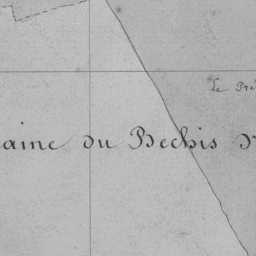 Le Pré
aine du Bechis d'